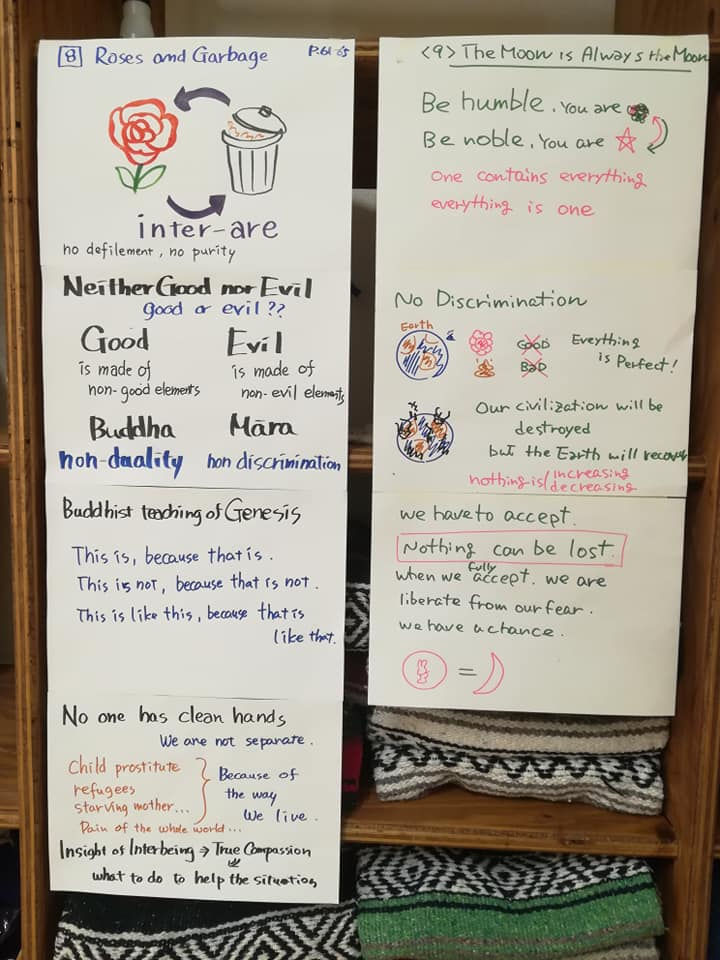 8 Roses and Garbage P.61-65
inter-are
no defilement, no purity
Neither Good nor Evil
good or evil ??
Good Evil
is made of is made of
non-good elements non-evil elements
Buddha Māra
non-duality non discrimination
Buddhist teaching of Genesis
This is, because that is.
This is not, because that is not.
This is like this, because that is
like that.
No one has clean hands
We are not separate.
Child prostitute
refugees
starving mother...
Pain of the whole world...
Because of
the way
We live.
Insight of Interbeing → True Compassion
what to do to help the situation
<9> The Moon is Always the Moon
Be humble. You are
Be noble. You are
one contains everything
everything is one
No Discrimination
Earth
GOOD
BAD
Eveything
is Perfect!
Our civilization will be
destroyed
but the Earth will recover
nothing is/increasing
decreasing
we have to accept.
Nothing can be lost.
when we fully accept. we are
liberate from our fear.
we have a chance.
=